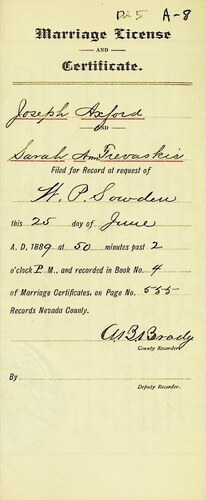 A-8
Marriage License
AND
Certificate.
Joseph Axford
AND
Sarah Ann Trevaskis
Filed for Record at request of
W. P. Sowden
this 25 day of June
A. D. 1889 at 50 minutes past 2
o'clock P. M., and recorded in Book No. 4
of Marriage Certificates, on Page No. 555
Records Nevada County.
Brady
County Recorder
By
Deputy Recorder.